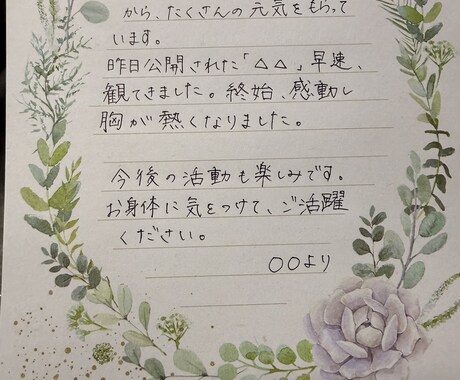 から、たくさんの元気をもらって
います。
昨日公開された「△△」早速、
観てきました。終始、感動し
胸が熱くなりました。
今後の活動も楽しみです。
お身体に気をつけて、ご活躍
ください。
○○より